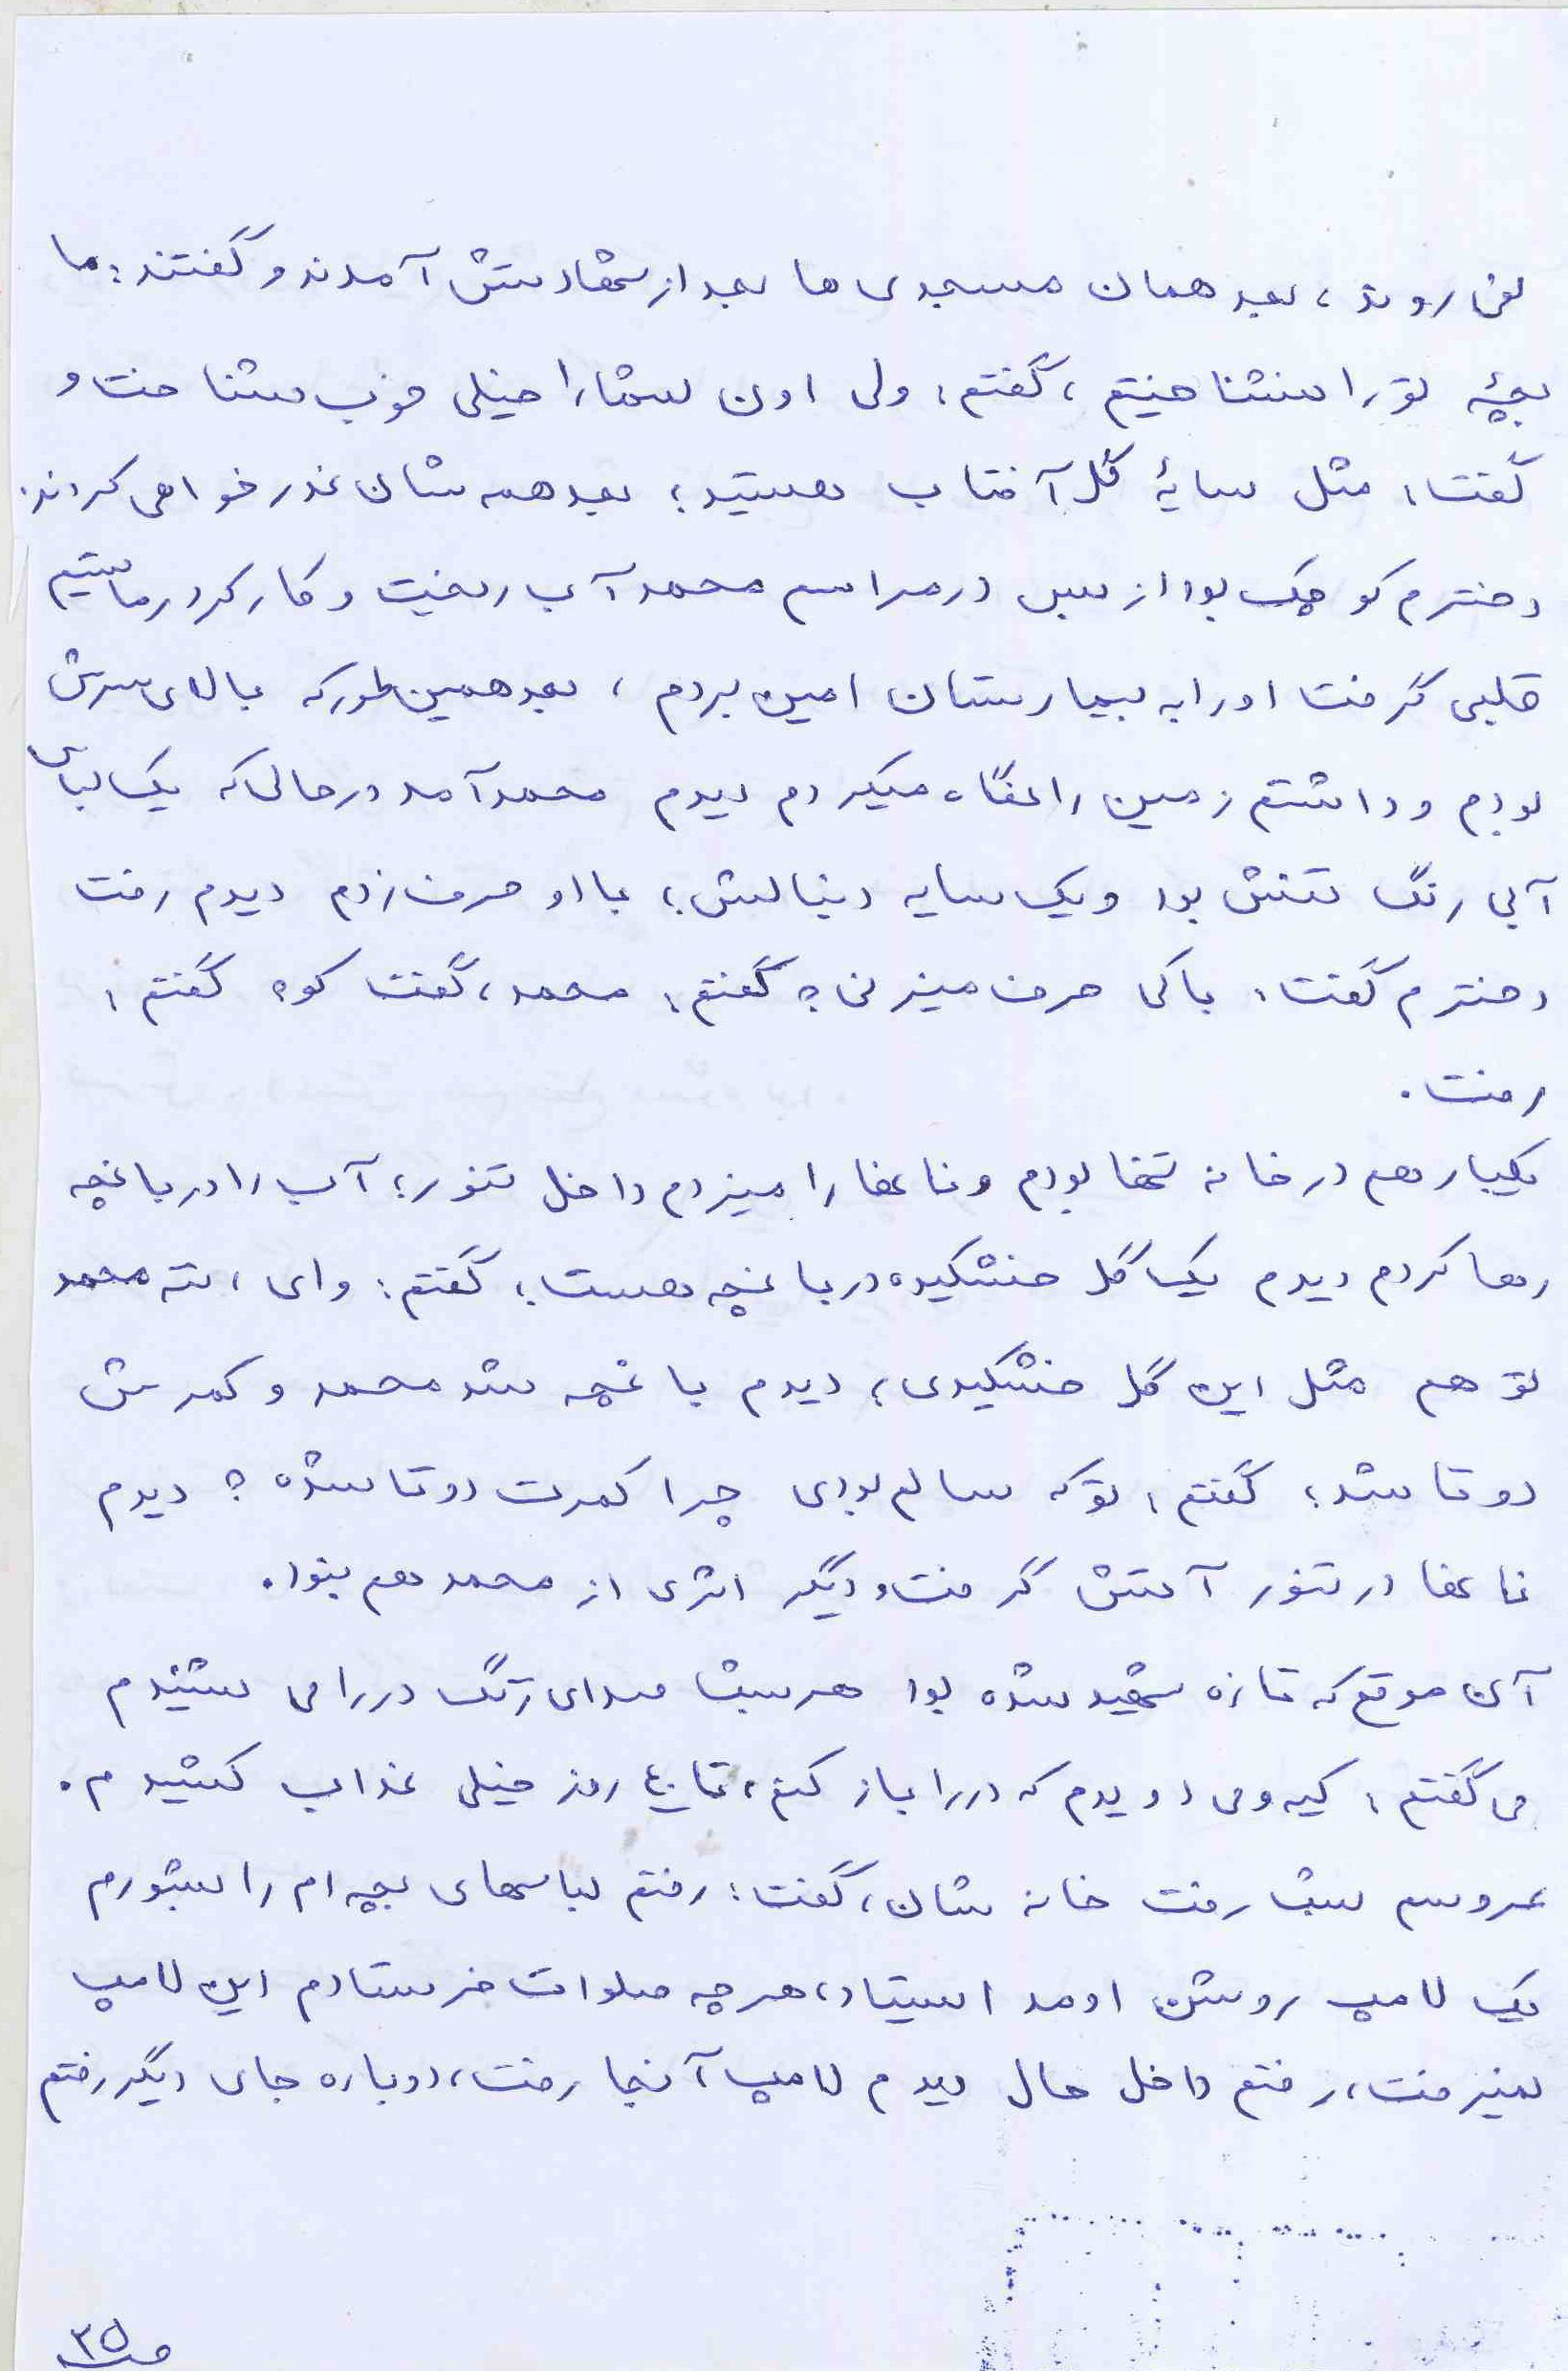 نمی‌روند، بعد همان مسجدی ها بعد از شهادتش آمدند و گفتند: ما
بچهٔ تو را نشناختیم، گفتم: ولی اون شما را خیلی خوب شناخت و
گفت: مثل سایهٔ گل آفتاب هستید؛ بعد همه شان عذر خواهی کردند.
دخترم کوچک بود از بس در مراسم محمد آب ریخت و کار کرد رماتیسم
قلبی گرفت او را به بیمارستان امین بردم، بعد همین طور که بالای سرش
بودم و داشتم زمین را نگاه میکردم دیدم محمد آمد در حالی که یک لباس
آبی رنگ تنش بود و یک سایه دنبالش؛ با او حرف زدم دیدم رفت
دخترم گفت: با کی حرف میزنی؟ گفتم: محمد، گفت کو؟ گفتم:
رفت.
یکبار هم در خانه تنها بودم و نانها را میزدم داخل تنور؛ آب را در باغچه
رها کردم دیدم یک گل خشکیده در باغچه هست؛ گفتم: وای، ننه محمد
تو هم مثل این گل خشکیدی؛ دیدم باغچه شد محمد و کمرش
دوتا شد؛ گفتم: تو که سالم بودی چرا کمرت دوتا شده؟ دیدم
نانها در تنور آتش گرفت و دیگر اثری از محمد هم نبود.
آن موقع که تازه شهید شده بود هر شب صدای زنگ در را می شنیدم
می گفتم: کیه و می دویدم که در را باز کنم، تا ۴۰ روز خیلی عذاب کشیدم.
عروسم شب رفت خانه شان، گفت: رفتم لباسهای بچه ام را بشورم
یک لامپ روشن اومد ایستاد، هر چه صلوات فرستادم این لامپ
نمیرفت، رفتم داخل هال دیدم لامپ آنجا رفت، دوباره جای دیگر رفتم
ص ۳۵